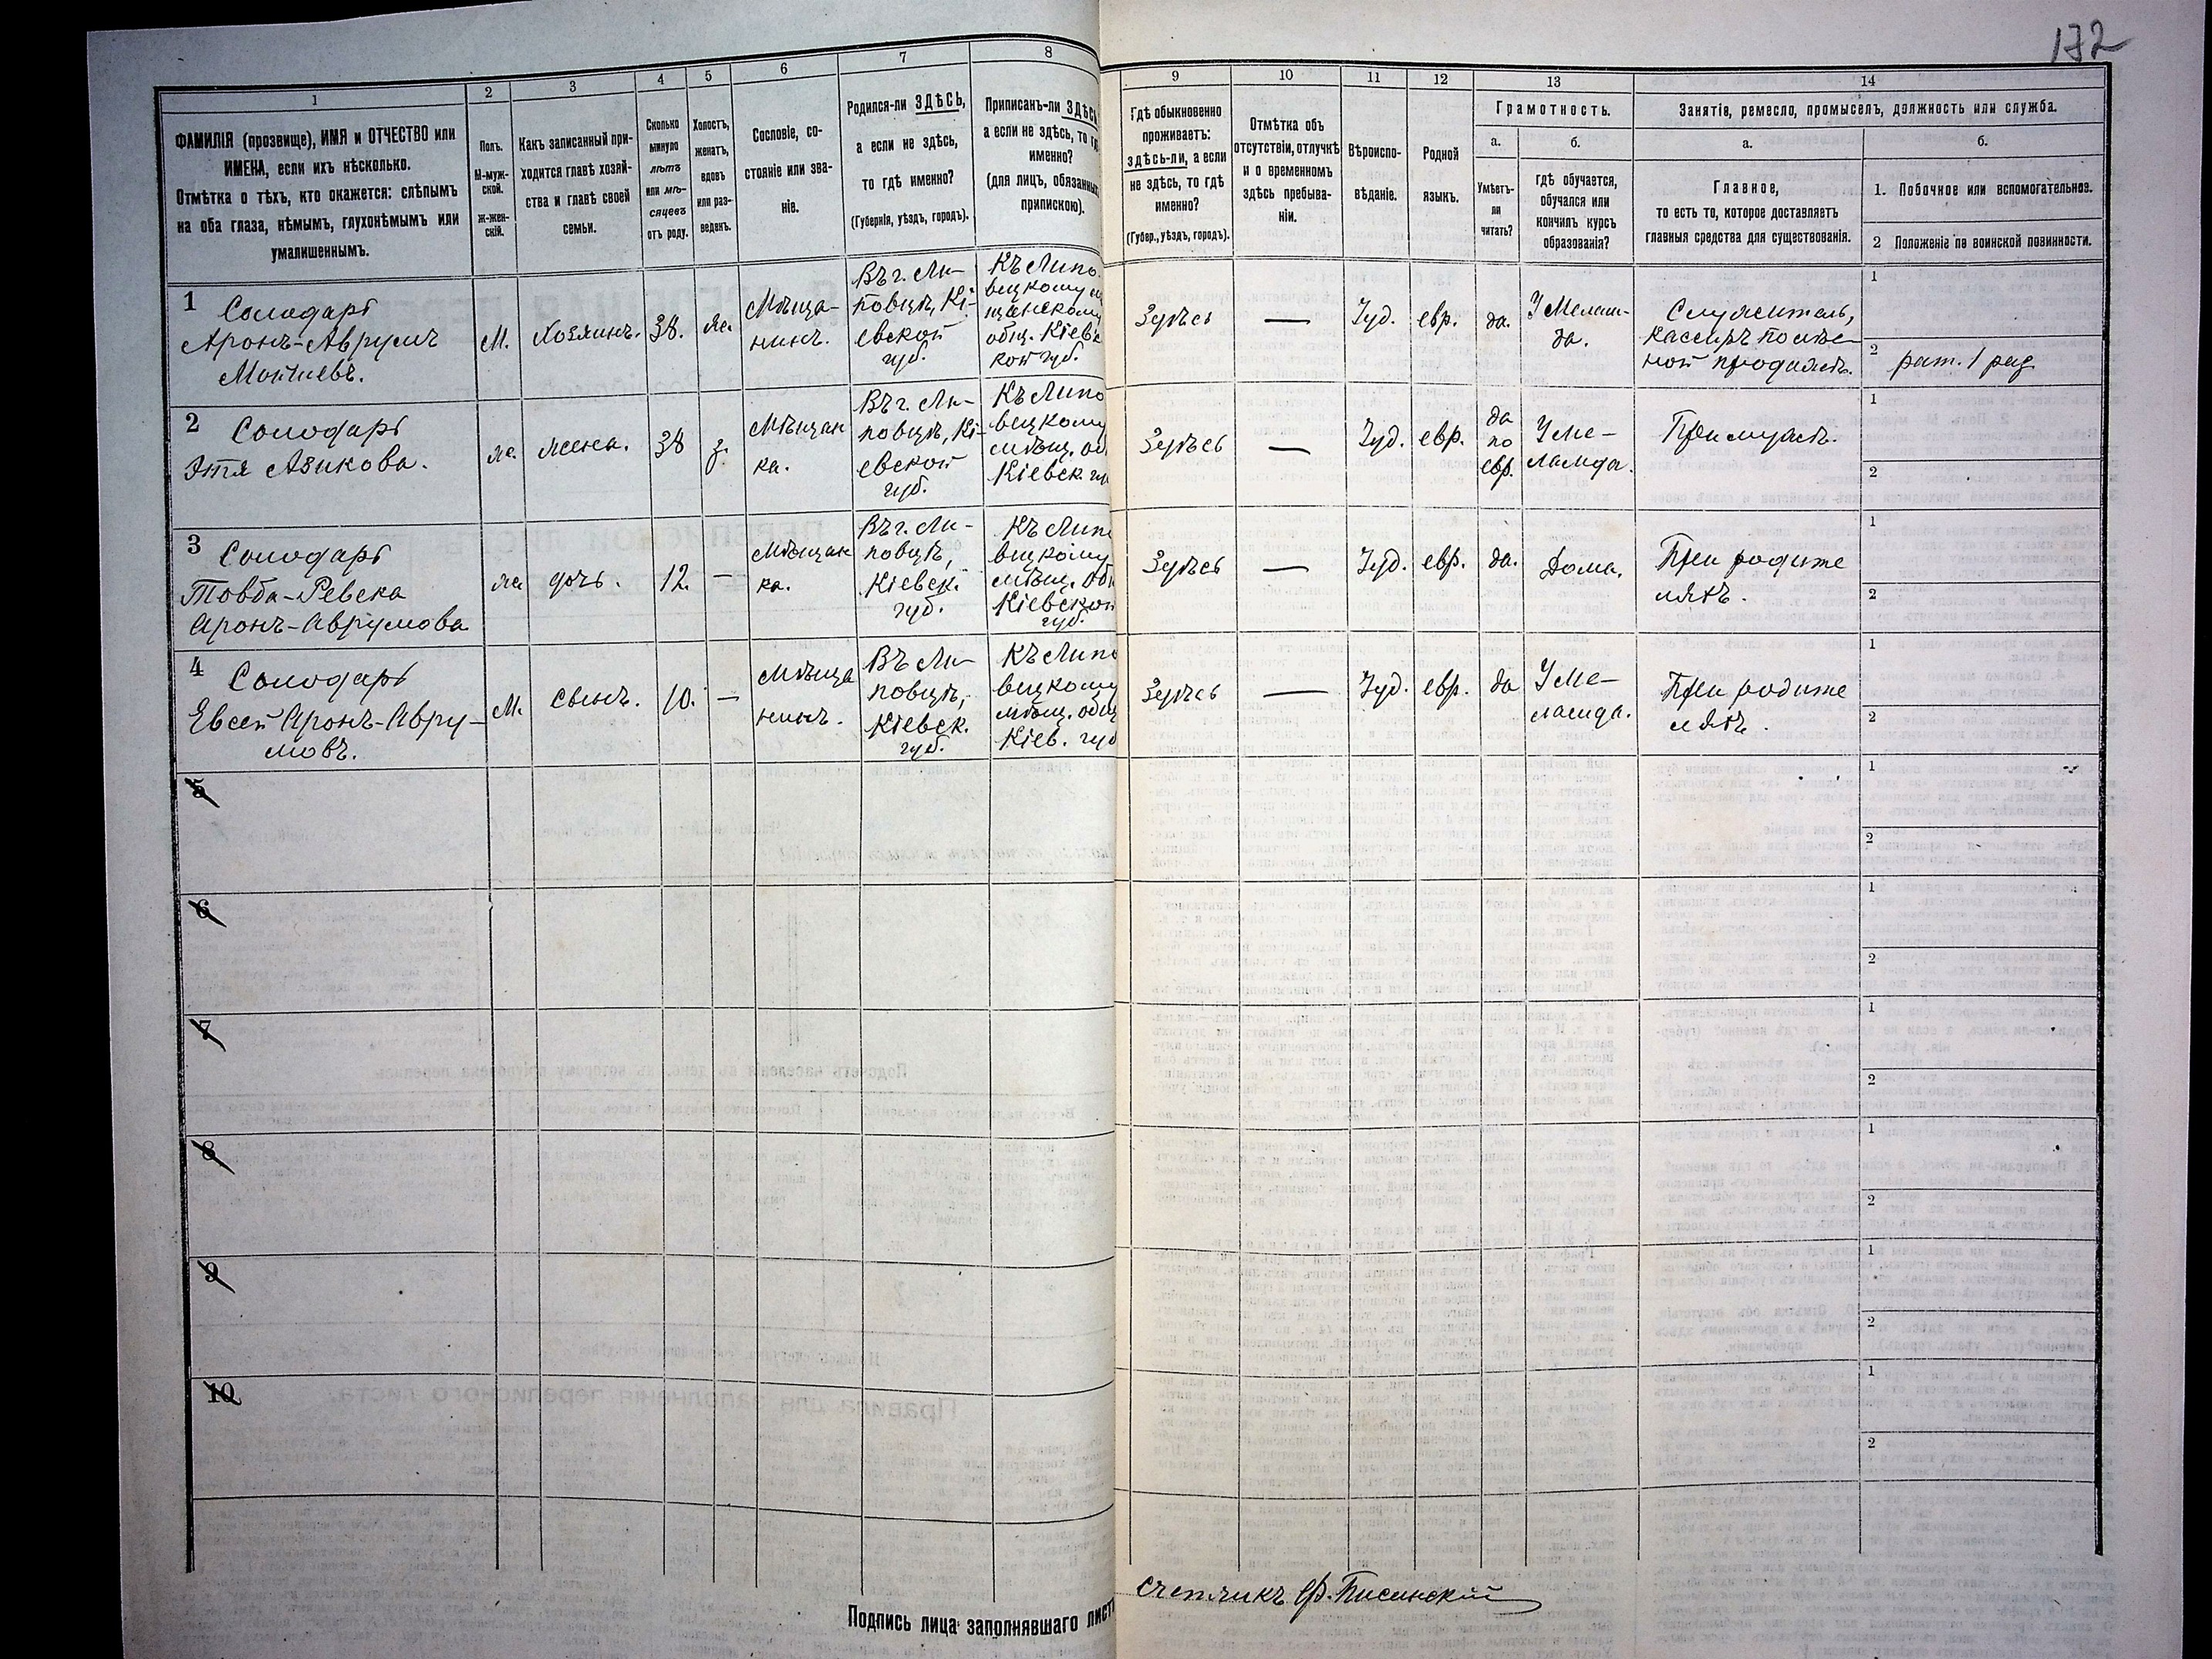 132
1
2
3
4
5
6
7
8
9
10
11
12
13
14
ФАМИЛІЯ (прозвище), ИМЯ и ОТЧЕСТВО или
ИМЕНА, если ихъ нѣсколько.
Отмѣтка о тѣхъ, кто окажется: слѣпымъ
на оба глаза, нѣмымъ, глухонѣмымъ или
умалишеннымъ.
Полъ.
М-муж-
ской.
ж-жен-
скій.
Какъ записанный при-
ходится главѣ хозяй-
ства и главѣ своей
семьи.
Сколько
минуло
лѣтъ
или мѣ-
сяцевъ
отъ роду.
Холостъ,
женатъ,
вдовъ
или раз-
веденъ.
Сословіе, со-
стояніе или зва-
ніе.
Родился-ли ЗДѢСЬ,
а если не здѣсь,
то гдѣ именно?
(Губернія, уѣздъ, городъ).
Приписанъ-ли ЗДѢСЬ
а если не здѣсь, то гд
именно?
(для лицъ, обязанных
припискою).
Гдѣ обыкновенно
проживаетъ:
здѣсь-ли, а если
не здѣсь, то гдѣ
именно?
(Губер., уѣздъ, городъ).
Отмѣтка объ
отсутствіи, отлучкѣ
и о временномъ
здѣсь пребыва-
ніи.
Вѣроиспо-
вѣданіе.
Родной
языкъ.
Грамотность.
а.
Умѣетъ-
ли
читать?
б.
гдѣ обучается,
обучался или
кончилъ курсъ
образованія?
Занятія, ремесло, промыселъ, должность или служба.
а.
Главное,
то есть то, которое доставляетъ
главныя средства для существованія.
б.
1. Побочное или вспомогательное.
2 Положеніе по воинской повинности.
1 Солодарь
Аронъ-Аврумъ
М.
Хозяинъ.
38.
же.
Мѣща-
нинъ.
Въ г. Ли-
повцѣ, Кі-
евской
губ.
Къ Липо
вецкому м
щанскому
общ. Кіевс
кой губ.
Здѣсь
—
Іуд.
евр.
да.
У Мелам-
да.
Служитель,
1
2 рат. 1 раз
2 Солодарь
Этя Азикова.
же.
жена.
38
з.
Мѣщан
ка.
Въ г. Ли-
повцѣ, Кі-
евской
губ.
Къ Липо
вецкому
мѣщ. об
Кіевск. гу
Здѣсь
—
Іуд.
евр.
да
по
евр.
У ме-
ламда.
При мужѣ.
1
2
3 Солодарь
Товба-Ревека
Аронъ-Аврумова
же
дочь.
12.
—
Мѣщан
ка.
Въ г. Ли-
повцѣ,
Кіевск.
губ.
Къ Липо
вецкому
мѣщ. Общ
Кіевской
губ.
Здѣсь
—
Іуд.
евр.
да.
Дома.
При родите
ляхъ.
1
2
4 Солодарь
Евсей Аронъ-Авру-
мовъ.
М.
сынъ.
10.
—
Мѣща
нинъ.
Въ Ли-
повцѣ,
Кіевск.
губ.
Къ Липо
вецкому
мѣщ. общ
Кіев. губ
Здѣсь
—
Іуд.
евр.
да
У ме-
ламда.
При родите
ляхъ.
1
2
5
1
2
6
1
2
7
1
2
8
1
2
9
1
2
10
1
2
Подпись лица заполнявшаго лист
счетчикъ Ф. Писинскій